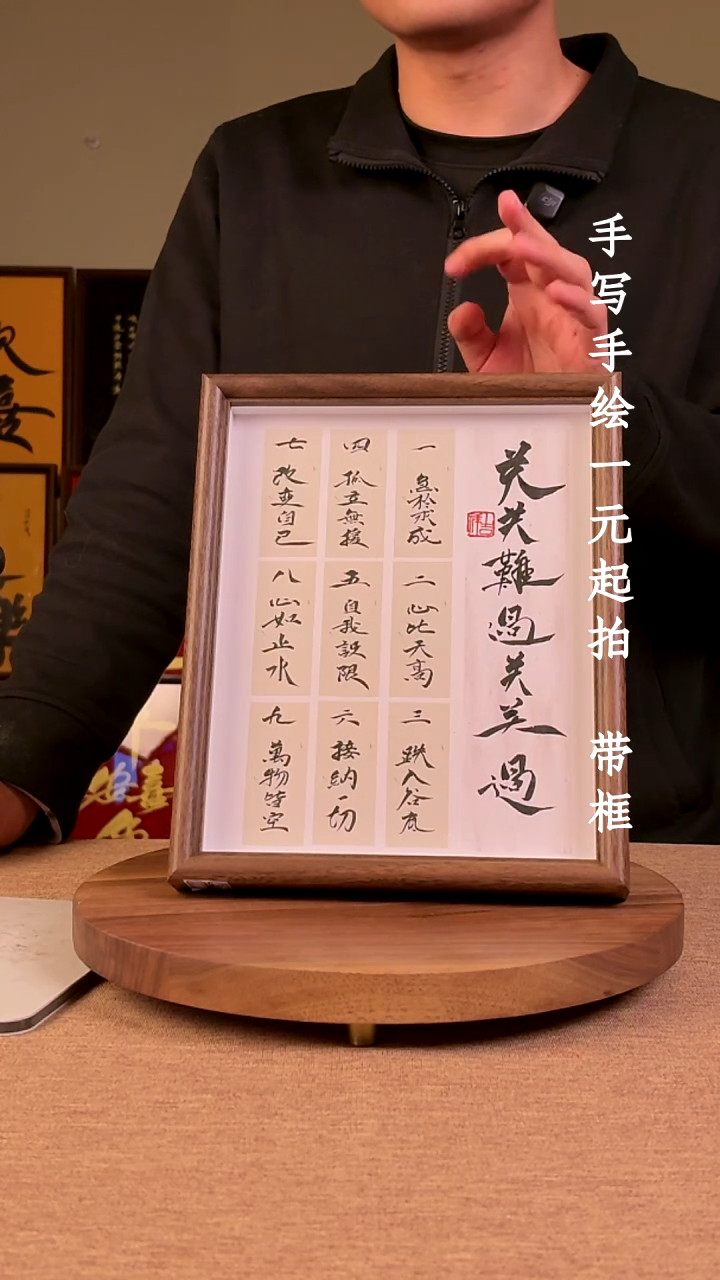 手写手绘一元起拍 带框
关关難過关关過
一 急於求成
二 心比天高
三 跌入谷底
四 孤立無援
五 自我設限
六 接納一切
七 改变自己
八 心如止水
九 萬物皆空